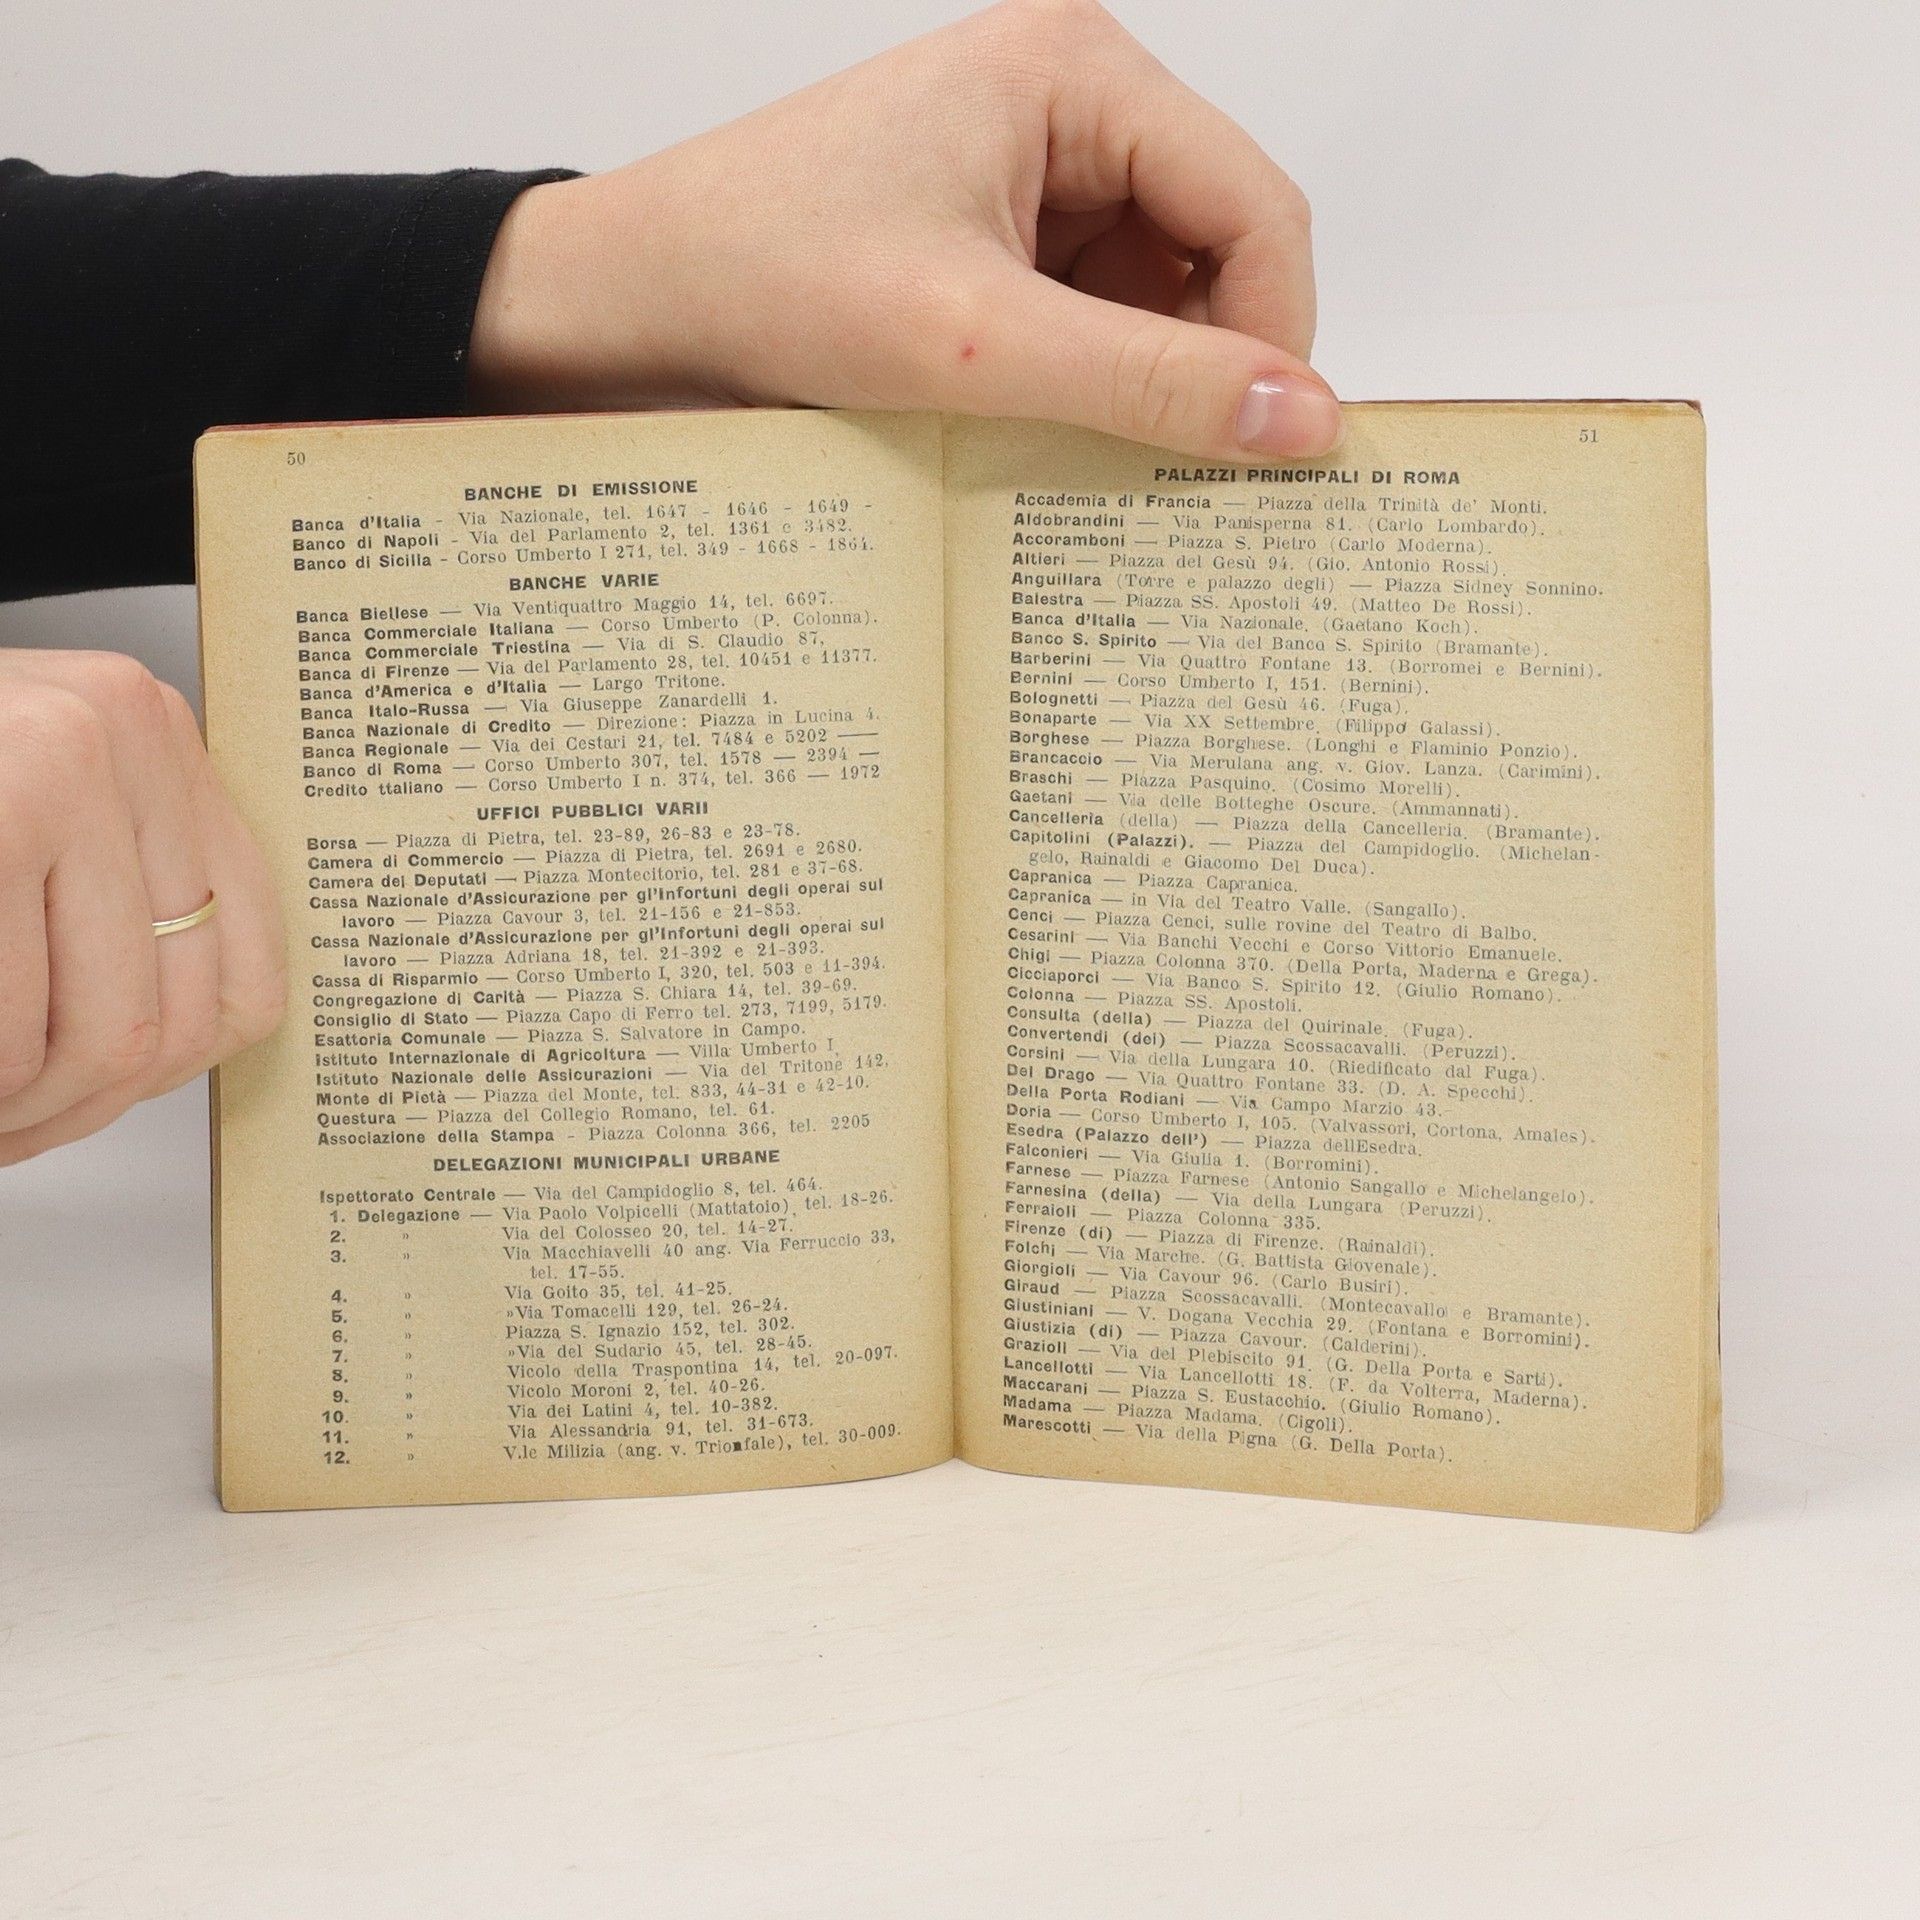 50
BANCHE DI EMISSIONE
Banca d'Italia - Via Nazionale, tel. 1647 - 1646 - 1649 -
Banco di Napoli - Via del Parlamento 2, tel. 1361 e 3482.
Banco di Sicilia - Corso Umberto I 271, tel. 349 - 1668 - 1864.
BANCHE VARIE
Banca Biellese — Via Ventiquattro Maggio 14, tel. 6697.
Banca Commerciale Italiana — Corso Umberto (P. Colonna).
Banca Commerciale Triestina — Via di S. Claudio 87,
Banca di Firenze — Via del Parlamento 28, tel. 10451 e 11377.
Banca d'America e d'Italia — Largo Tritone.
Banca Italo-Russa — Via Giuseppe Zanardelli 1.
Banca Nazionale di Credito — Direzione: Piazza in Lucina 4.
Banca Regionale — Via dei Cestari 21, tel. 7484 e 5202 —
Banco di Roma — Corso Umberto 307, tel. 1578 — 2394 —
Credito ttaliano — Corso Umberto I n. 374, tel. 366 — 1972
UFFICI PUBBLICI VARII
Borsa — Piazza di Pietra, tel. 23-89, 26-83 e 23-78.
Camera di Commercio — Piazza di Pietra, tel. 2691 e 2680.
Camera dei Deputati — Piazza Montecitorio, tel. 281 e 37-68.
Cassa Nazionale d'Assicurazione per gl'Infortuni degli operai sul
lavoro — Piazza Cavour 3, tel. 21-156 e 21-853.
Cassa Nazionale d'Assicurazione per gl'Infortuni degli operai sul
lavoro — Piazza Adriana 18, tel. 21-392 e 21-393.
Cassa di Risparmio — Corso Umberto I, 320, tel. 503 e 11-394.
Congregazione di Carità — Piazza S. Chiara 14, tel. 39-69.
Consiglio di Stato — Piazza Capo di Ferro tel. 273, 7199, 5179.
Esattoria Comunale — Piazza S. Salvatore in Campo.
Istituto Internazionale di Agricoltura — Villa Umberto I,
Istituto Nazionale delle Assicurazioni — Via del Tritone 142,
Monte di Pietà — Piazza del Monte, tel. 833, 44-31 e 42-10.
Questura — Piazza del Collegio Romano, tel. 61.
Associazione della Stampa - Piazza Colonna 366, tel. 2205
DELEGAZIONI MUNICIPALI URBANE
Ispettorato Centrale — Via del Campidoglio 8, tel. 464.
1. Delegazione — Via Paolo Volpicelli (Mattatoio), tel. 18-26.
2. » Via del Colosseo 20, tel. 14-27.
3. » Via Macchiavelli 40 ang. Via Ferruccio 33,
tel. 17-55.
4. » Via Goito 35, tel. 41-25.
5. » »Via Tomacelli 129, tel. 26-24.
6. » Piazza S. Ignazio 152, tel. 302.
7. » »Via del Sudario 45, tel. 28-45.
8. » Vicolo della Traspontina 14, tel. 20-097.
9. » Vicolo Moroni 2, tel. 40-26.
10. » Via dei Latini 4, tel. 10-382.
11. » Via Alessandria 91, tel. 31-673.
12. » V.le Milizia (ang. v. Trionfale), tel. 30-009.
51
PALAZZI PRINCIPALI DI ROMA
Accademia di Francia — Piazza della Trinità de' Monti.
Aldobrandini — Via Panisperna 81. (Carlo Lombardo).
Accoramboni — Piazza S. Pietro (Carlo Moderna).
Altieri — Piazza del Gesù 94. (Gio. Antonio Rossi).
Anguillara (Torre e palazzo degli) — Piazza Sidney Sonnino.
Balestra — Piazza SS. Apostoli 49. (Matteo De Rossi).
Banca d'Italia — Via Nazionale. (Gaetano Koch).
Banco S. Spirito — Via del Banco S. Spirito (Bramante).
Barberini — Via Quattro Fontane 13. (Borromei e Bernini).
Bernini — Corso Umberto I, 151. (Bernini).
Bolognetti — Piazza del Gesù 46. (Fuga).
Bonaparte — Via XX Settembre. (Filippo Galassi).
Borghese — Piazza Borghese. (Longhi e Flaminio Ponzio).
Brancaccio — Via Merulana ang. v. Giov. Lanza. (Carimini).
Braschi — Piazza Pasquino. (Cosimo Morelli).
Gaetani — Via delle Botteghe Oscure. (Ammannati).
Cancelleria (della) — Piazza della Cancelleria. (Bramante).
Capitolini (Palazzi). — Piazza del Campidoglio. (Michelan-
gelo, Rainaldi e Giacomo Del Duca).
Capranica — Piazza Capranica.
Capranica — in Via del Teatro Valle. (Sangallo).
Cenci — Piazza Cenci, sulle rovine del Teatro di Balbo.
Cesarini — Via Banchi Vecchi e Corso Vittorio Emanuele.
Chigi — Piazza Colonna 370. (Della Porta, Maderna e Grega).
Cicciaporci — Via Banco S. Spirito 12. (Giulio Romano).
Colonna — Piazza SS. Apostoli.
Consulta (della) — Piazza del Quirinale. (Fuga).
Convertendi (dei) — Piazza Scossacavalli. (Peruzzi).
Corsini — Via della Lungara 10. (Riedificato dal Fuga).
Del Drago — Via Quattro Fontane 33. (D. A. Specchi).
Della Porta Rodiani — Via Campo Marzio 43.
Doria — Corso Umberto I, 105. (Valvassori, Cortona, Amales).
Esedra (Palazzo dell') — Piazza dellEsedra.
Falconieri — Via Giulia 1. (Borromini).
Farnese — Piazza Farnese (Antonio Sangallo e Michelangelo).
Farnesina (della) — Via della Lungara (Peruzzi).
Ferraioli — Piazza Colonna 335.
Firenze (di) — Piazza di Firenze. (Rainaldi).
Folchi — Via Marche. (G. Battista Giovenale).
Giorgioli — Via Cavour 96. (Carlo Busiri).
Giraud — Piazza Scossacavalli. (Montecavallo e Bramante).
Giustiniani — V. Dogana Vecchia 29. (Fontana e Borromini).
Giustizia (di) — Piazza Cavour. (Calderini).
Grazioli — Via del Plebiscito 91. (G. Della Porta e Sarti).
Lancellotti — Via Lancellotti 18. (F. da Volterra, Maderna).
Maccarani — Piazza S. Eustacchio. (Giulio Romano).
Madama — Piazza Madama. (Cigoli).
Marescotti — Via della Pigna (G. Della Porta).